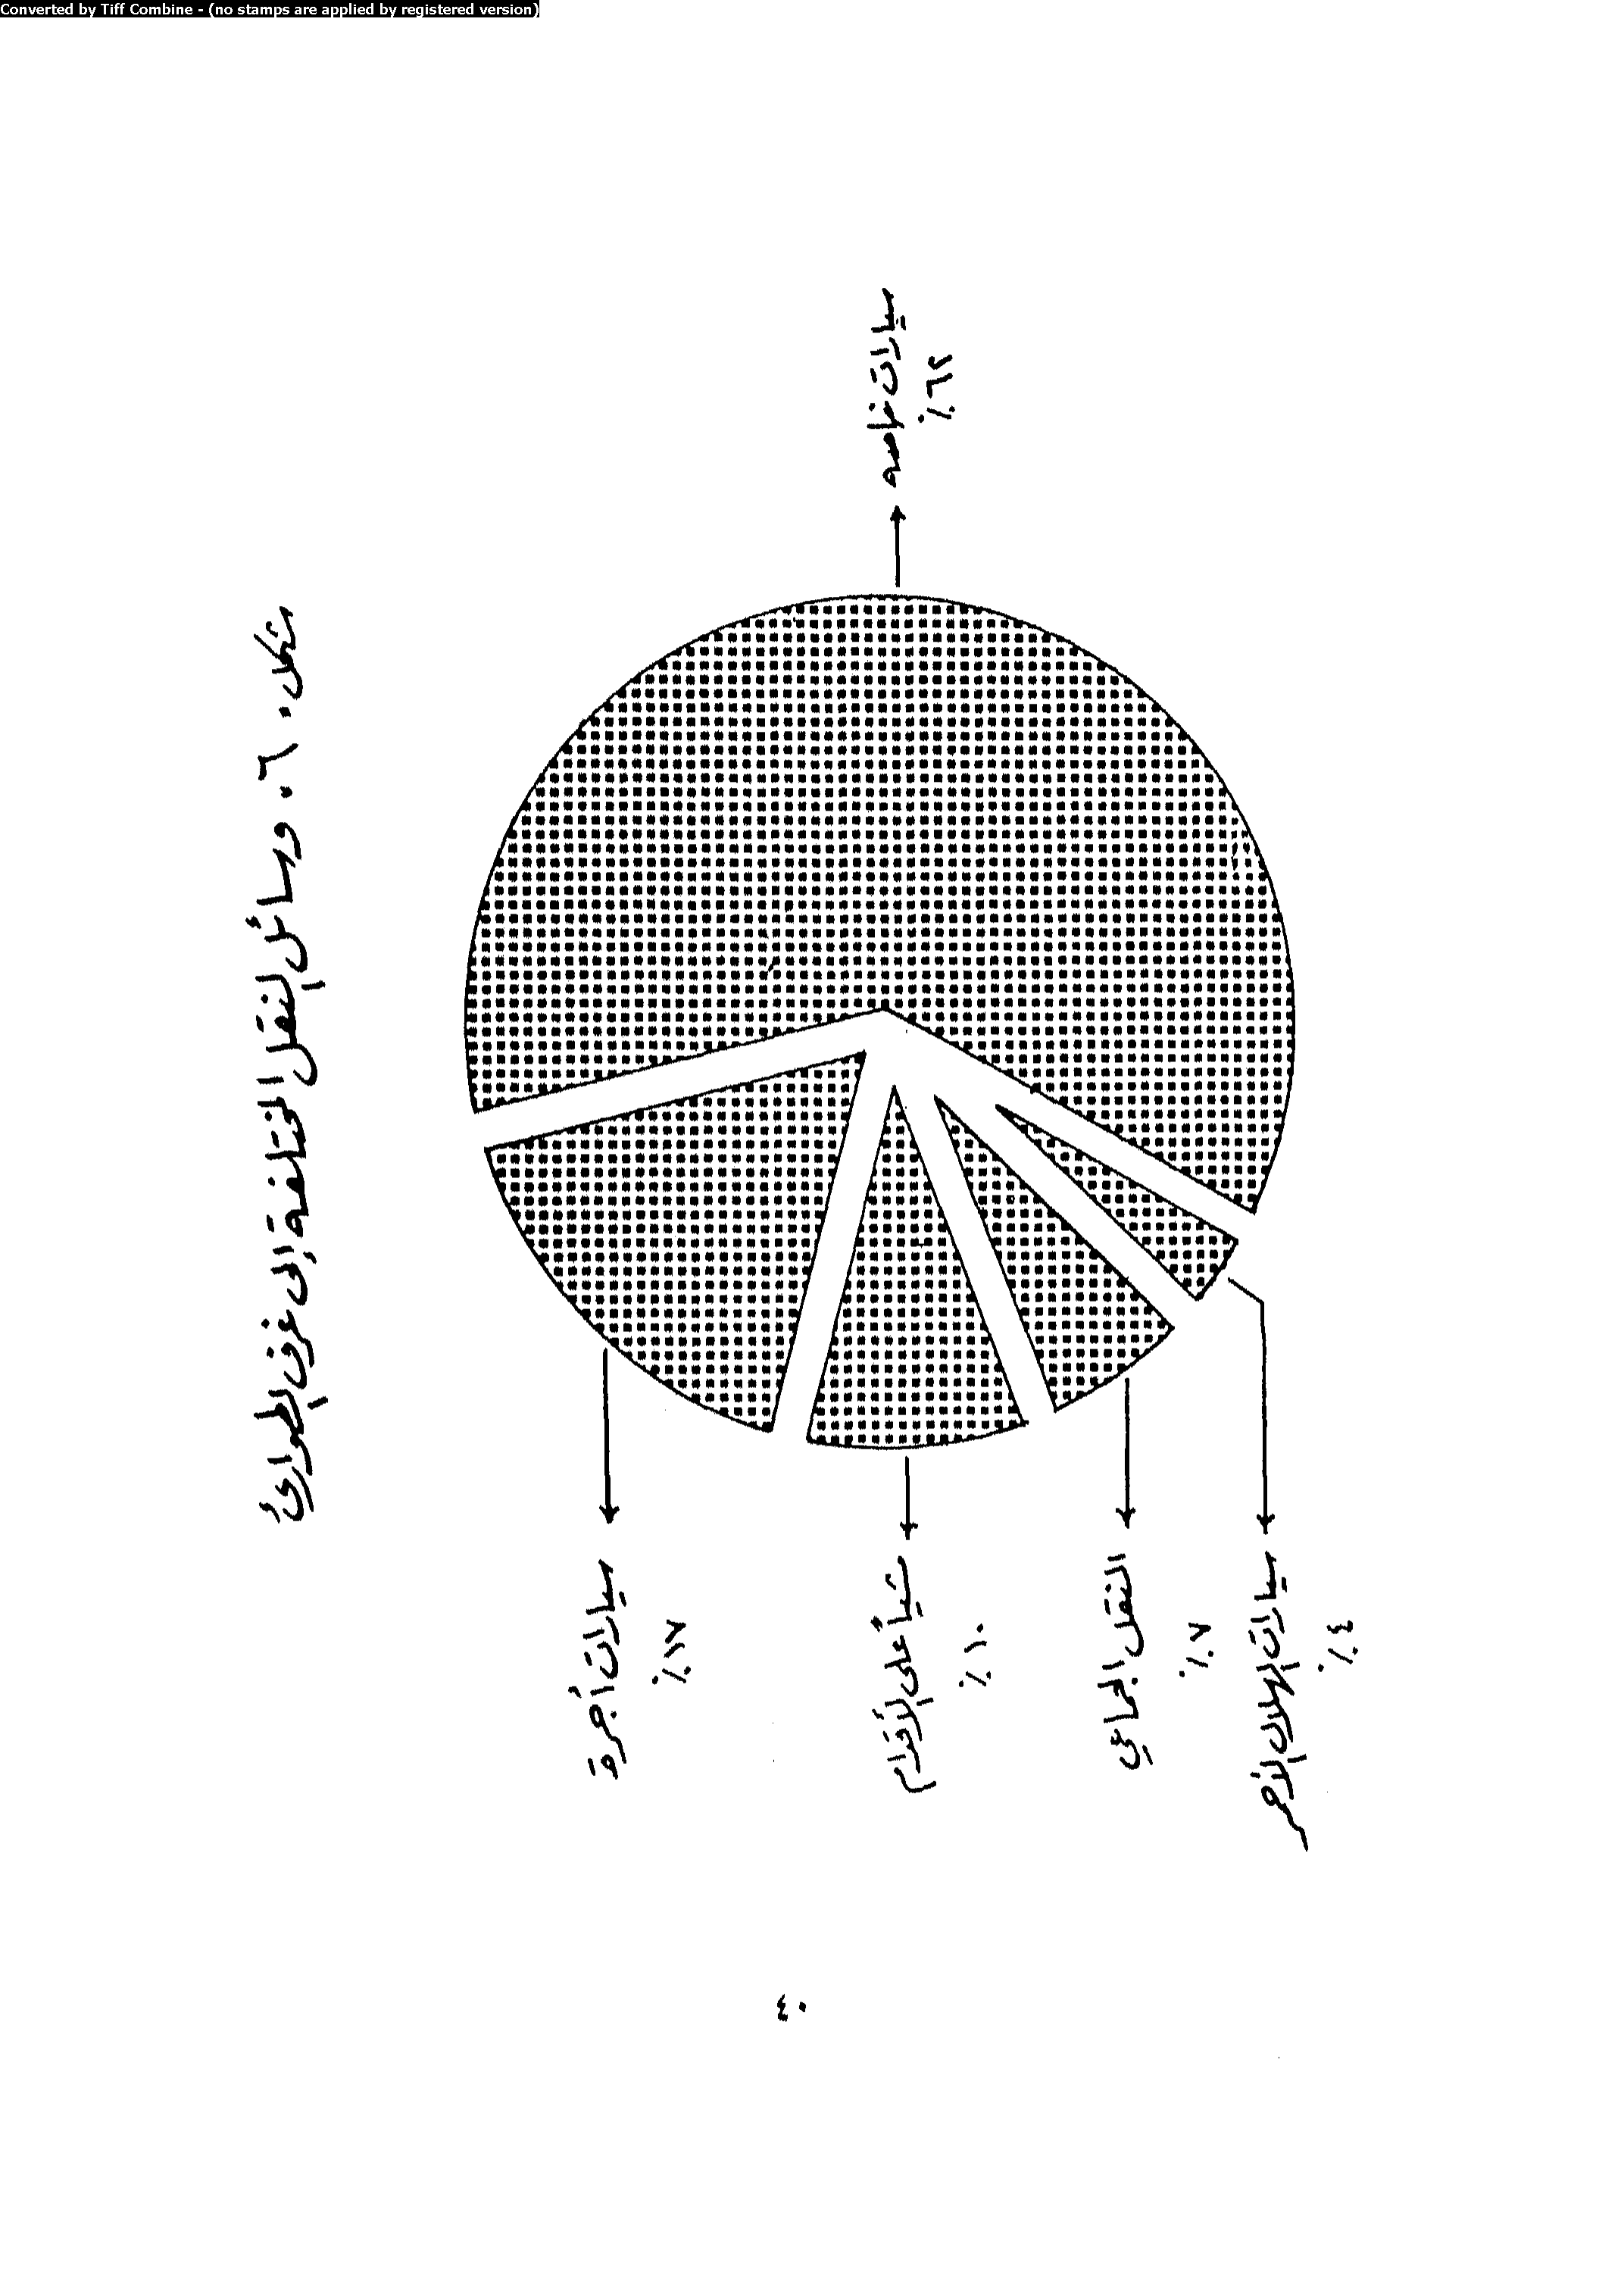 Converted by Tiff Combine - (no stamps are applied by registered version)
شكل ٦٠ . وسائل النقل المختلفة إلى غرف الطوارئ
سيارات خاصه
٪٦٢
سيارات أجرة
٪١٧
مشياً على الأقدام
٪١٠
النقل الجماعي
٪٧
سيارات الهلال الأحمر
٪٤
٤٠